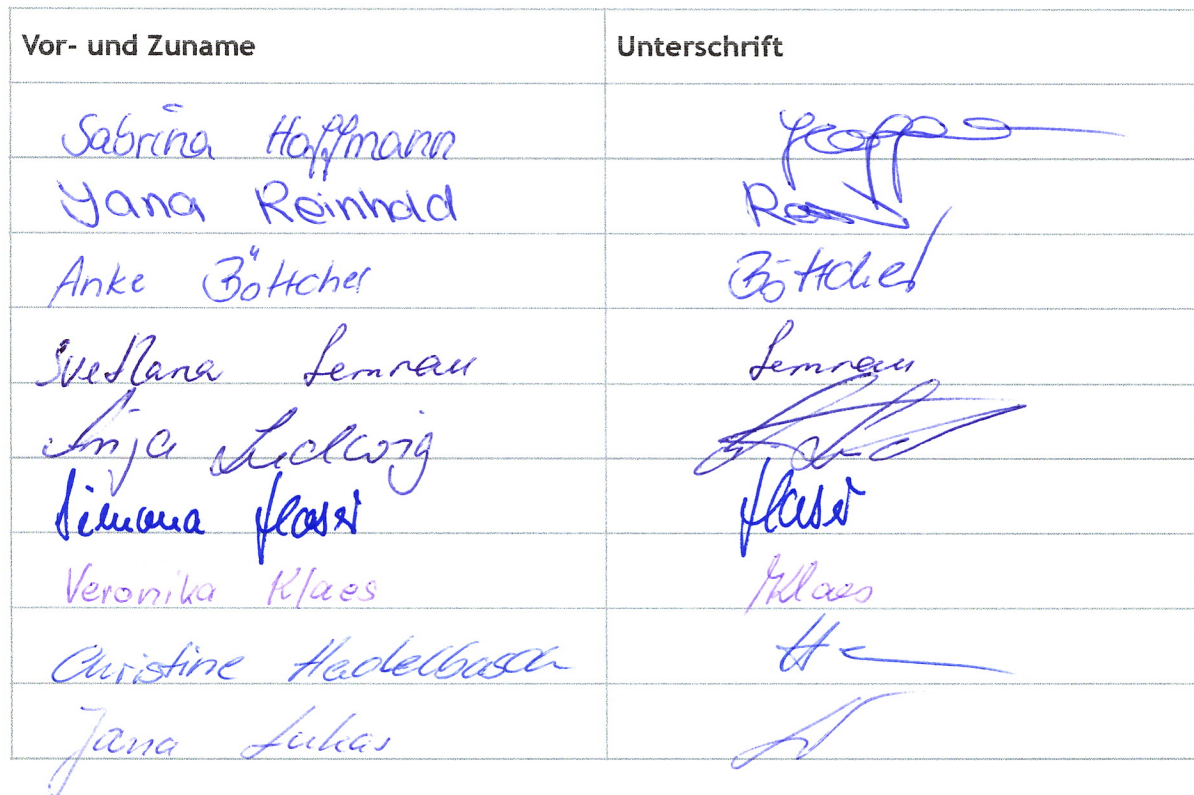 Vor- und Zuname Unterschrift
Sabrina Hoffmann
Yana Reinhold
Anke Böttcher Böttcher
Svetlana Semrau Semrau
Anja Ludwig
Simona
Veronika Klaes Klaes
Christine
Jana Lukas